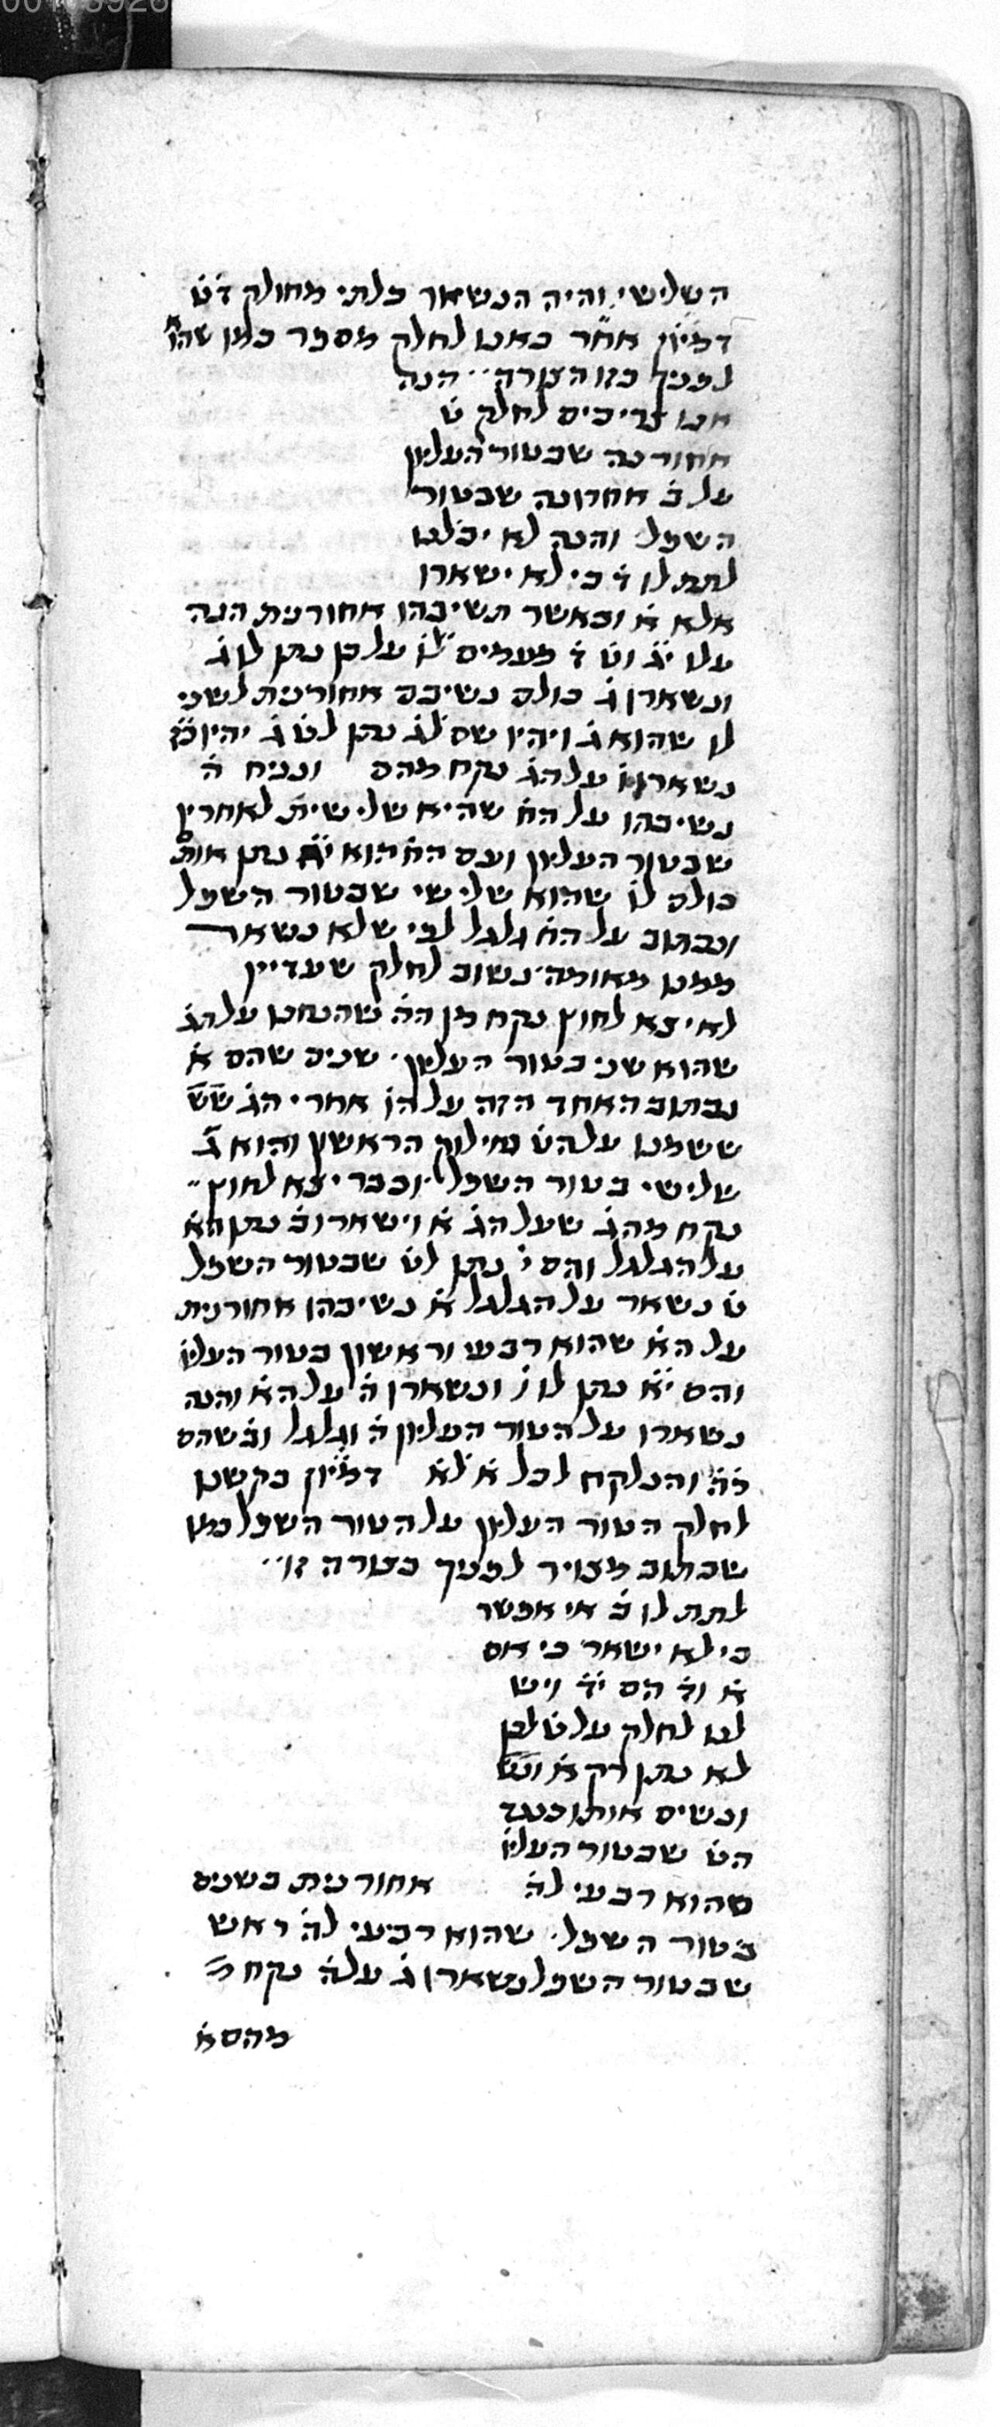 השלישי והיה הנשאר בלתי מחולק ד̇ט̇
דמיון אחר באנו לחלק מספר כמו שהוא
לפניך בזו הצורה הנה
אנו צריכים לחלק ט̇
אחורנה שבטור העליון
על ב̇ אחרונה שבטור
השפל והנה לא יכלנו
לתת לו ד̇ כי לא ישארו
אלא א̇ וכאשר תשיבהו אחורנית הנה
עלו י̇ג̇ וט̇ ד̇ פעמים ל̇ו̇ על כן נתן לו ג̇
ונשארו ג̇ כולם נשיבם אחורנית לשני
לו שהוא ג̇ ויהיו שם ל̇ג̇ נתן לט̇ ג̇ יהיו כ̇ז̇
נשארו ו̇ על הג̇ נקח מהם ונניח ה̇
נשיבהו על הח̇ שהיא שלישית לאחרון
שבטור העליון ועם הח̇ הוא י̇ח̇ נתן אותם
כולם לו̇ שהוא שלישי שבטור השפל
ונכתוב על הח̇ גלגל לפי שלא נשאר
ממנו מאומה נשוב לחלק שעדיין
לא יצא לחוץ נקח מן הה̇ שהנחנו על הג̇
שהוא שני בטור העליון שנים שהם א̇
נכתוב האחד הזה על הו̇ אחרי הג̇
ששמנו על הט̇ מחילוק הראשון והוא ג̇
שלישי בטור השפל וכבר יצא לחוץ
נקח מהג̇ שעל הג̇ א̇ וישארו ב̇ נתן הא̇
על הגלגל והם י̇ נתן לט̇ שבטור השפל
ט̇ נשאר על הגלגל א̇ נשיבהו אחורנית
על הא̇ שהוא רביעי וראשון בטור העליו
והם י̇א̇ נתן לו ו̇ ונשארו ה̇ על הא̇ והנה
נשארו על הטור העליון ה̇ וגלגל וב̇ שהם
ר̇ה̇ והנלקח לכל א̇ ל̇א̇ דמיון בקשנו
לחלק הטור העליון על הטור השפל כמו
שכתוב מצויר לפניך בצורה זו
לתת לו ב̇ אי אפשר
כי לא ישאר כי אם
א̇ וד̇ הם י̇ד̇ ויש
לנו לחלק על ט̇ לכן
לא נתן רק א̇
ונשים אותו כנגד
הט̇ שבטור העליו
שהוא רביעי לה̇ אחורנית בשנים
בטור השפל שהוא רביעי לה̇ ראש
שבטור השפל נשארו ג̇ על ה̇ נקח
מהם א̇